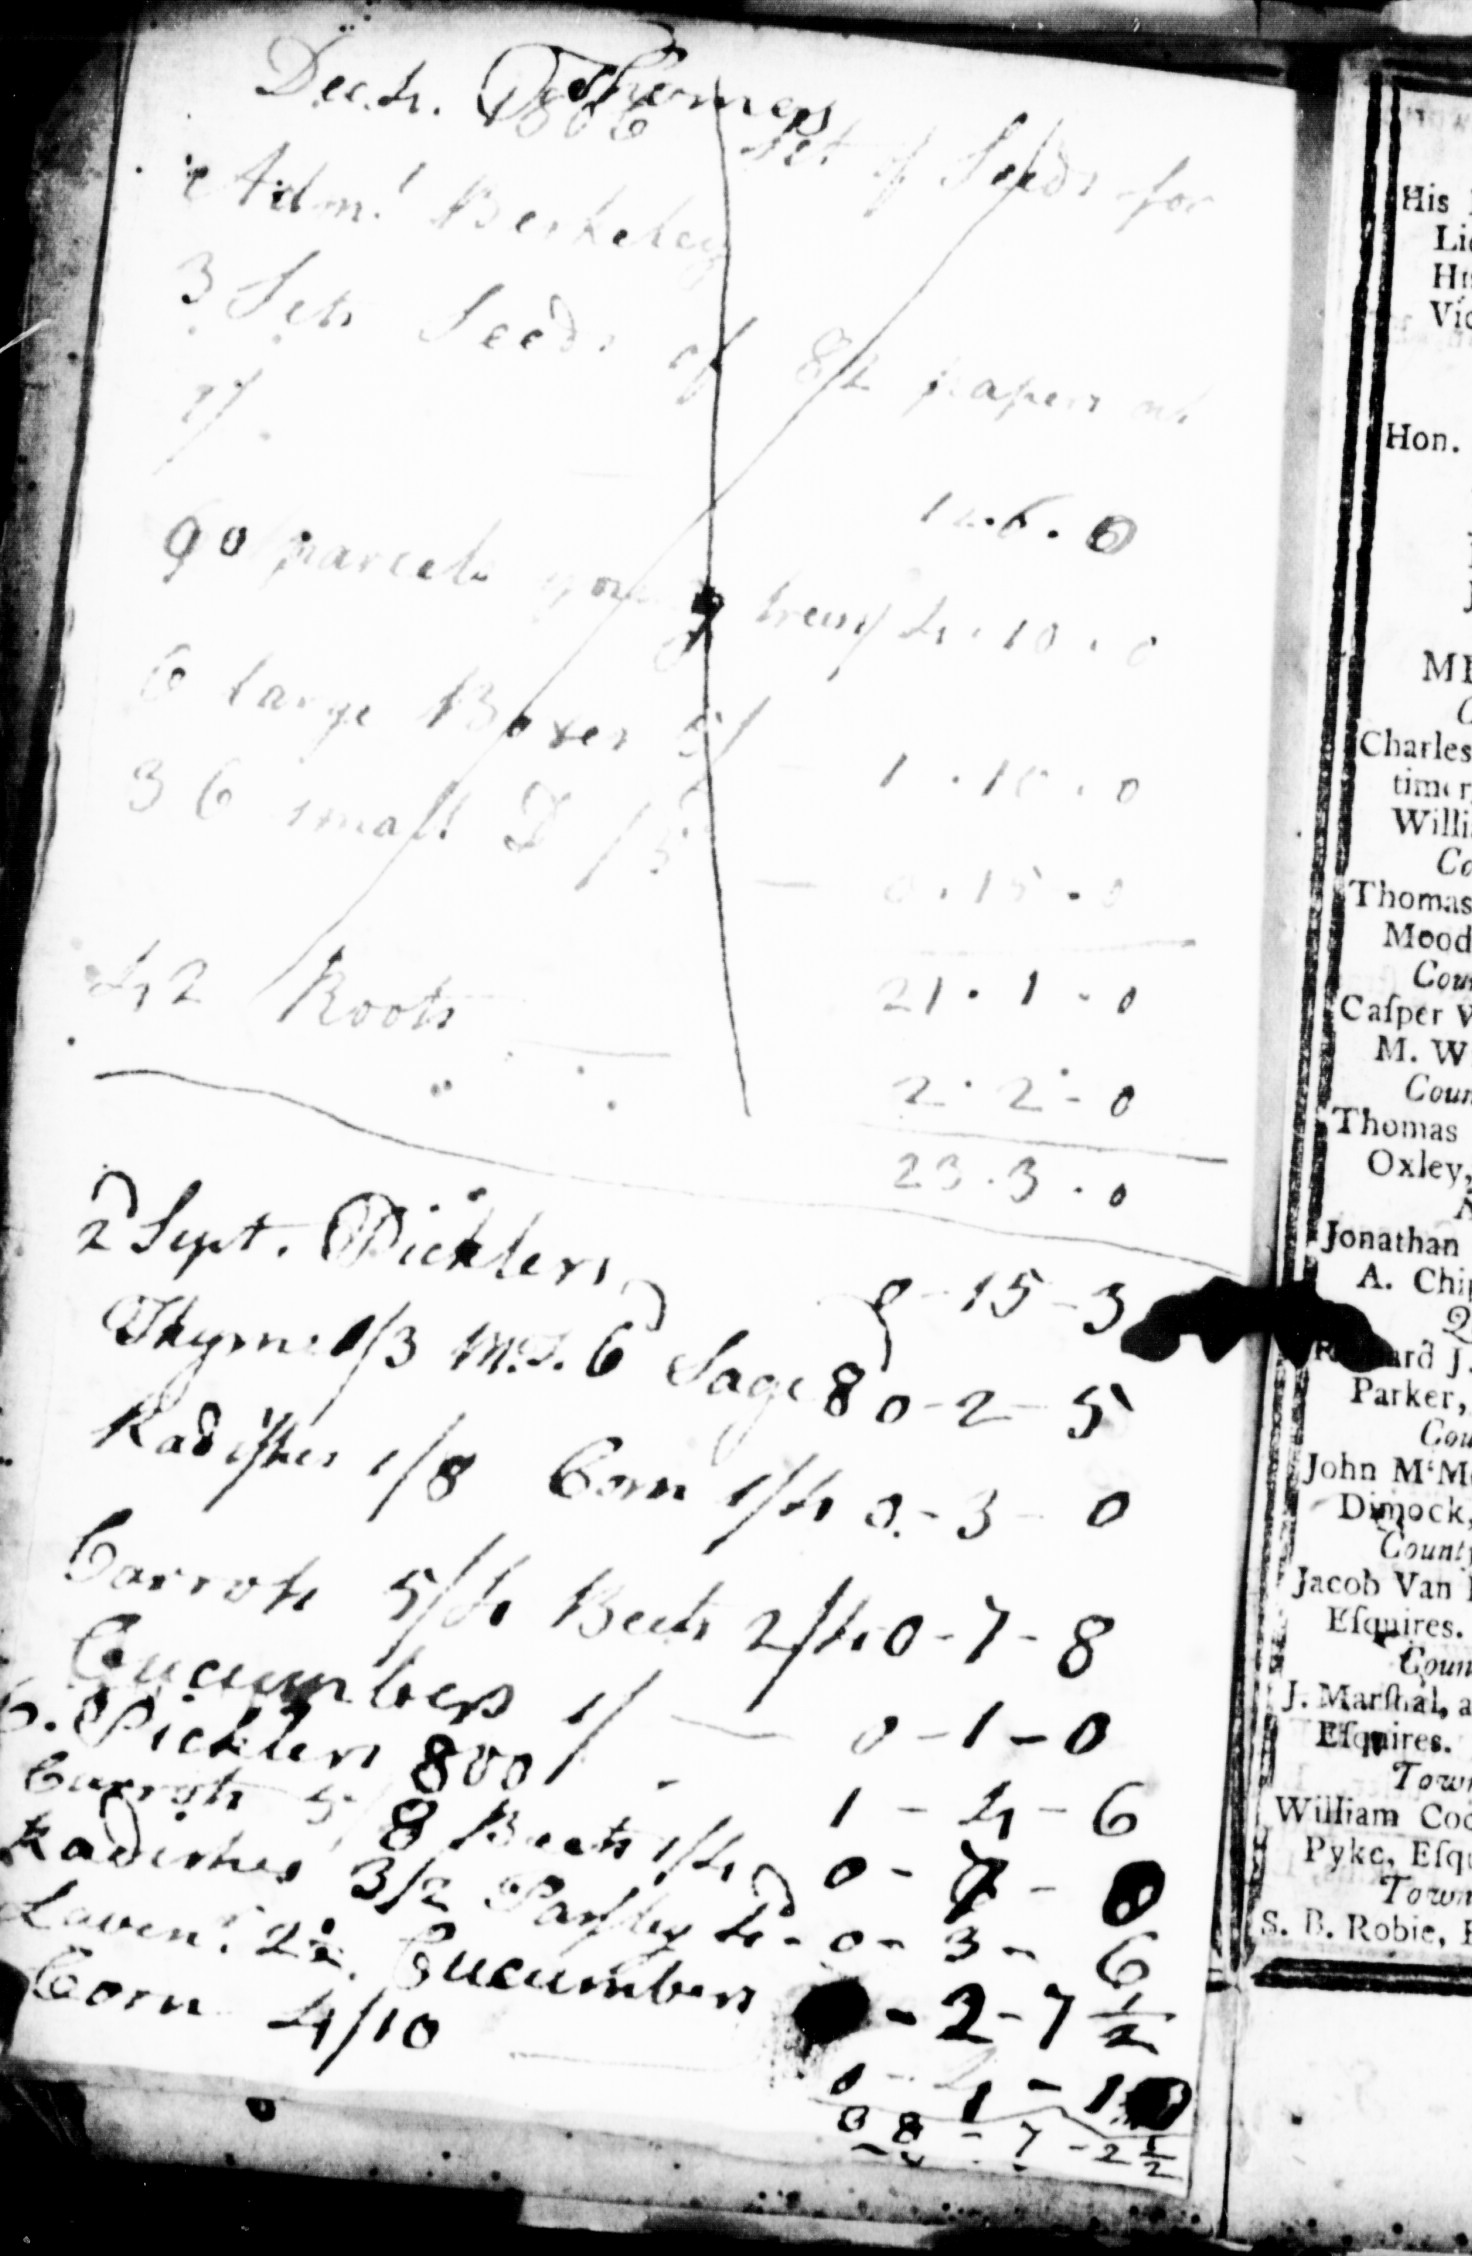 Decr. 1806 Set of Seeds for
Thomas
Adml Berkeley
3 Sets Seeds of 82 papers at
1/
12 . 6 . 0
90 parcels young trees / 4 . 10 . 0
6 large Boxes 5/ - 1 . 10 . 0
36 small D /5 — 0 . 15 . 0
21 . 1 . 0
42 Roots 2 . 2 - 0
23 . 3 . 0
2d Sept. Picklers 0 - 15 - 3
Thyme 1/3 M.J. 6d Sage 8d 0 - 2 - 5
Radishes 1/8 Corn 1/4 0 - 3 - 0
Carrots 5/4 Beets 2/4 0 - 7 - 8
Cucumbers 1/ — 0 - 1 - 0
6. Picklers 800 1 - 4 - 6
Carrots 5/8 Beets 1/4 0 - 7 - 0
Radishes 3/2 Parsley 4d - 0 - 3 - 6
Laven.r 2½ Cucumbers - 2 - 7 ½
Corn 4/10 — 0 - 4 - 10
8 - 7 - 2 ½
His
Hon.
Charles
Willi
Thomas
Mood
Coun
Caſper
M. W
Coun
Thomas
Oxley,
Jonathan
A. Chip
J.
Parker,
Cou
John M'M
Dimock,
County
Jacob Van
Eſquires.
Coun
J. Marſhal, a
Eſquires.
Town
William Coc
Pyke, Eſqu
Town
S. B. Robie,